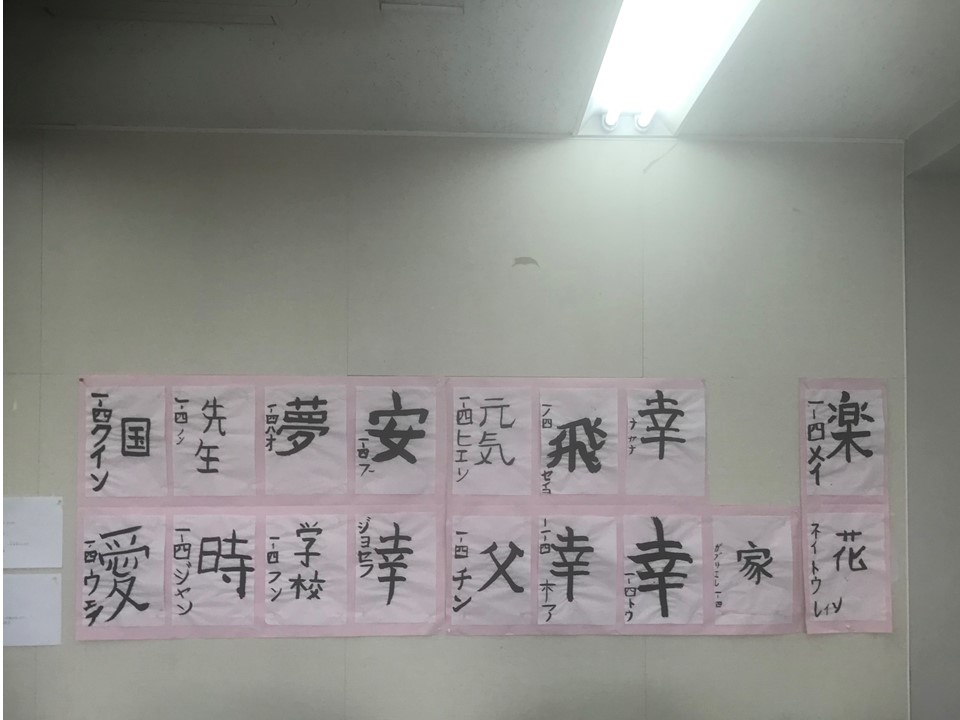 国
一-四クイン
先生
一-四
夢
一-四ハオ
安
元気
一-四ヒエン
飛
一ノ四
セイコ
幸
楽
一-四メイ
愛
一-四ウェン
時
一-四ジャン
学校
一-四フン
幸
ジョセフ
父
一-四チン
幸
一-四
幸
一-四トウ
家
ガブリエル 一-四
花
ネイトウ
レイン